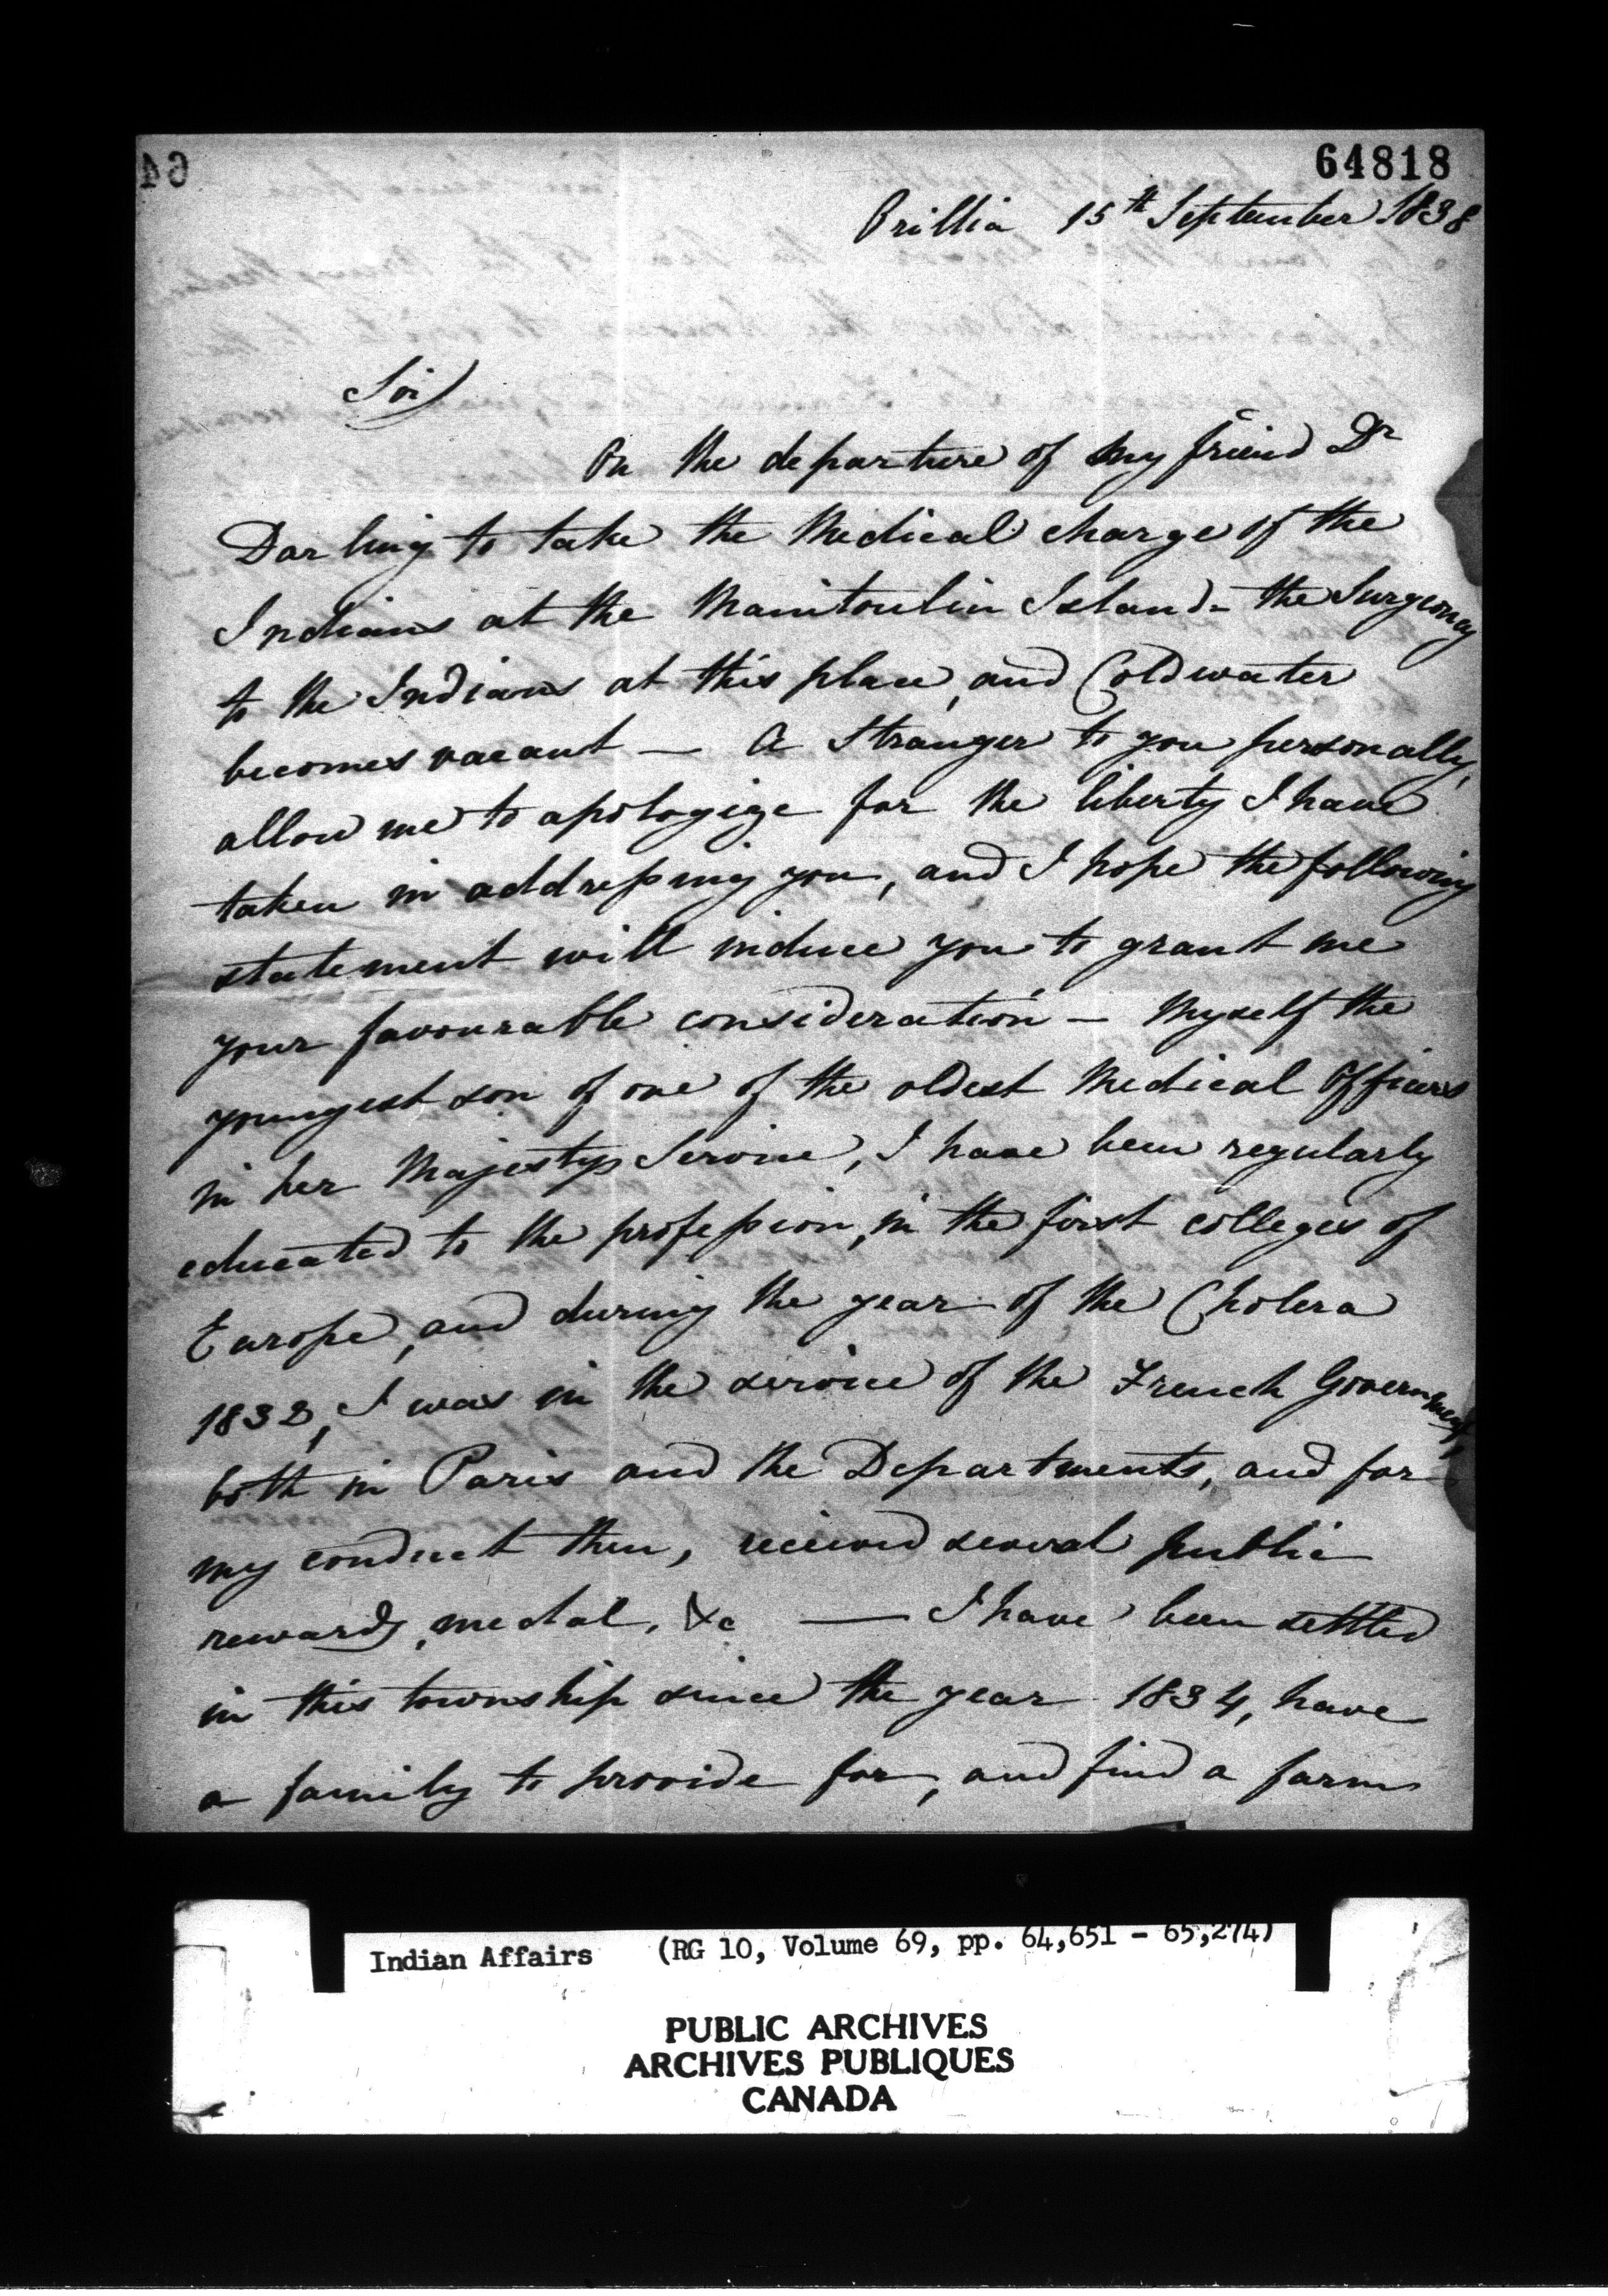 64818
Orillia 15th September 1838
Sir
On the departure of my friend Dr
Darling to take the Medical charge of the
Indians at the Manitoulin Island - the Surgeoncy
to the Indians at this place, and Coldwater
becomes vacant — A Stranger to you personally,
allow me to apologize for the liberty I have
taken in addressing you, and I hope the following
statement will induce you to grant me
your favourable consideration — Myself the
youngest son of one of the oldest Medical Officers
in her Majestys Service, I have been regularly
educated to the profession, in the first colleges of
Europe, and during the year of the Cholera
1832, I was in the service of the French Government,
both in Paris and the Departments, and for
my conduct then, received several public
rewards, medal, &c — I have been settled
in this township since the year 1834, have
a family to provide for, and find a farm
Indian Affairs (RG 10, Volume 69, pp. 64,651 - 65,274)
PUBLIC ARCHIVES
ARCHIVES PUBLIQUES
CANADA